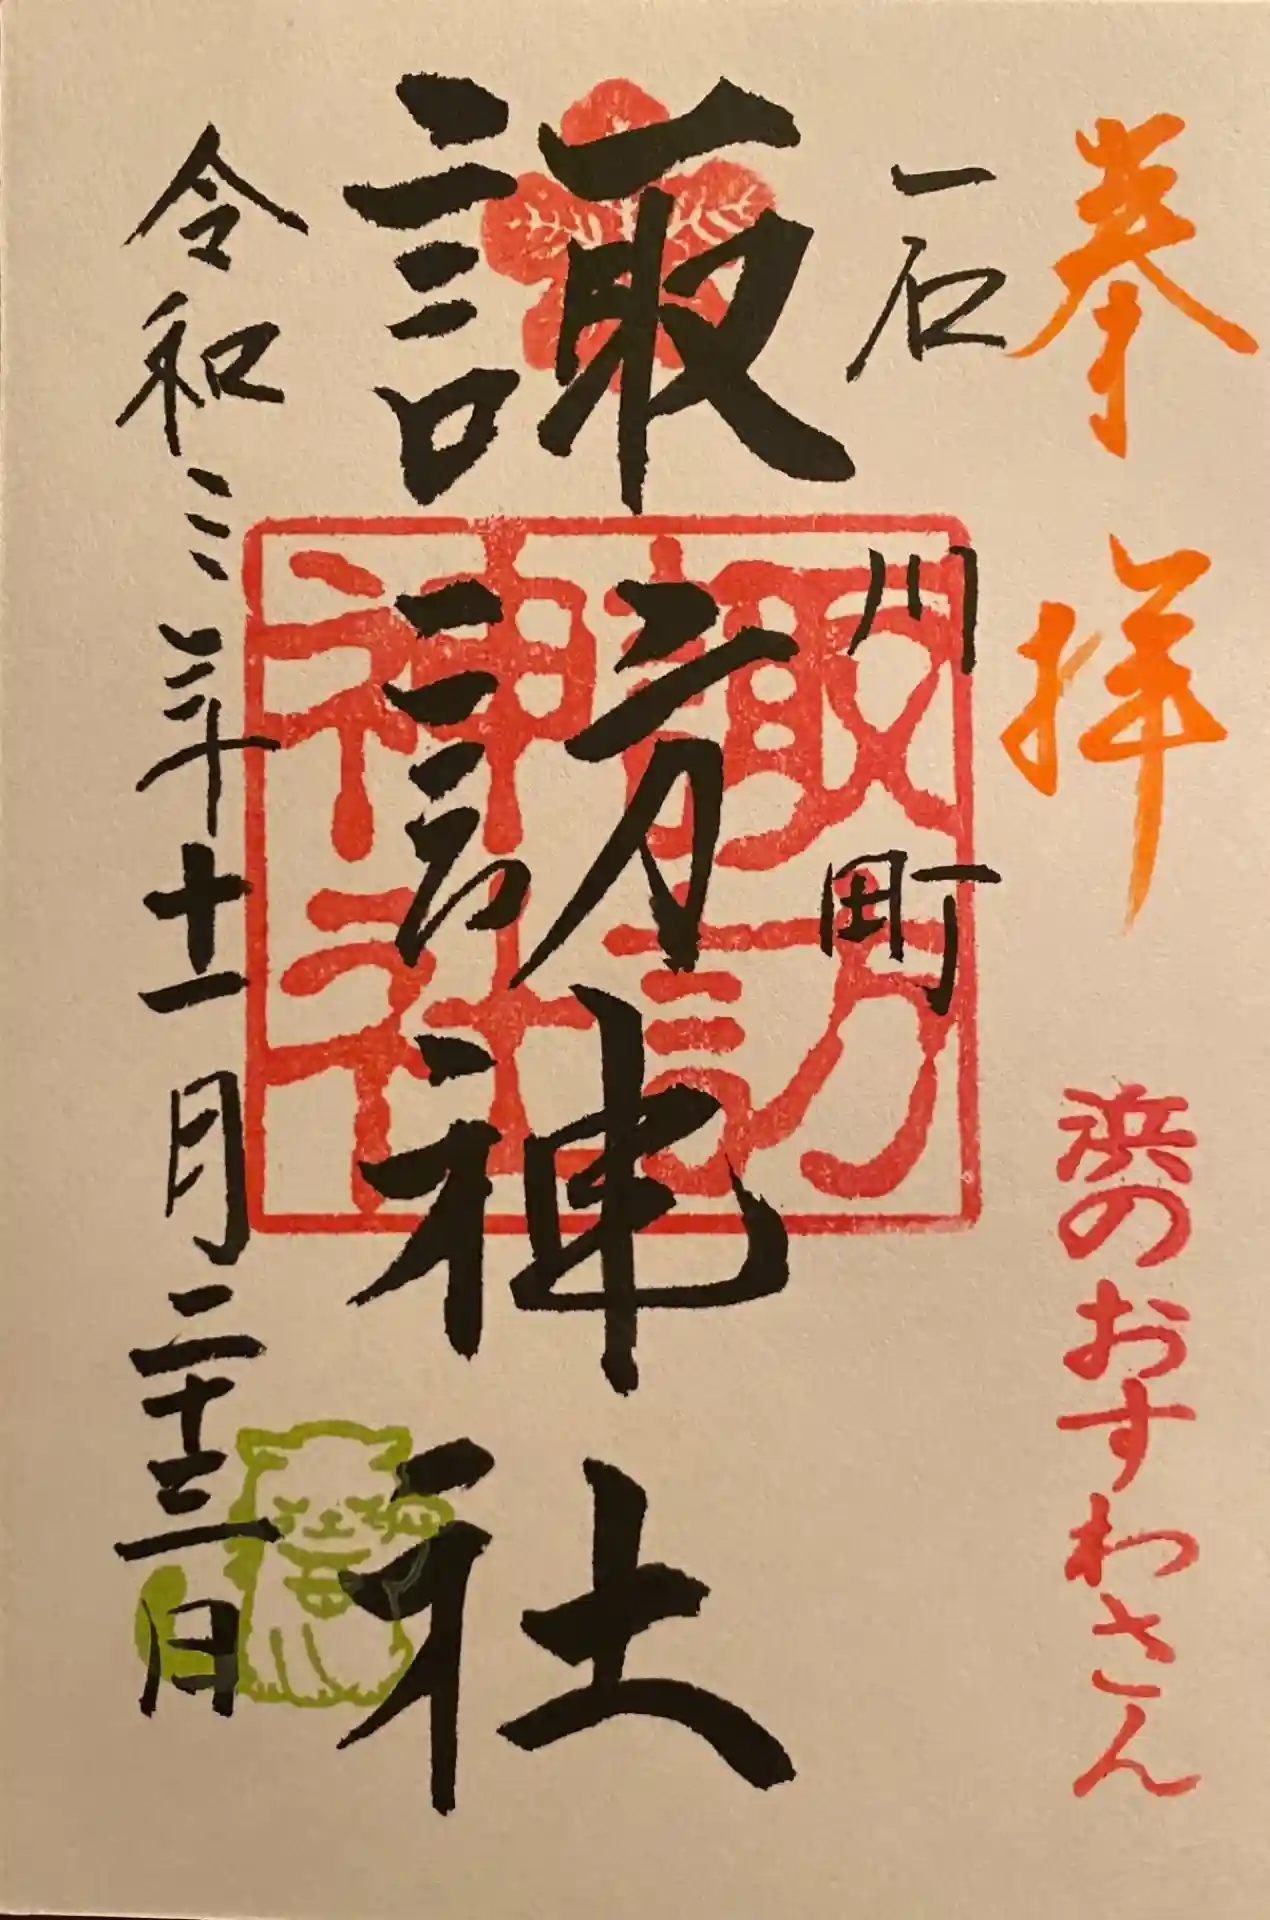 奉拝
浜のおすわさん
石川町
諏訪神社
諏訪神社
令和三年十一月二十三日